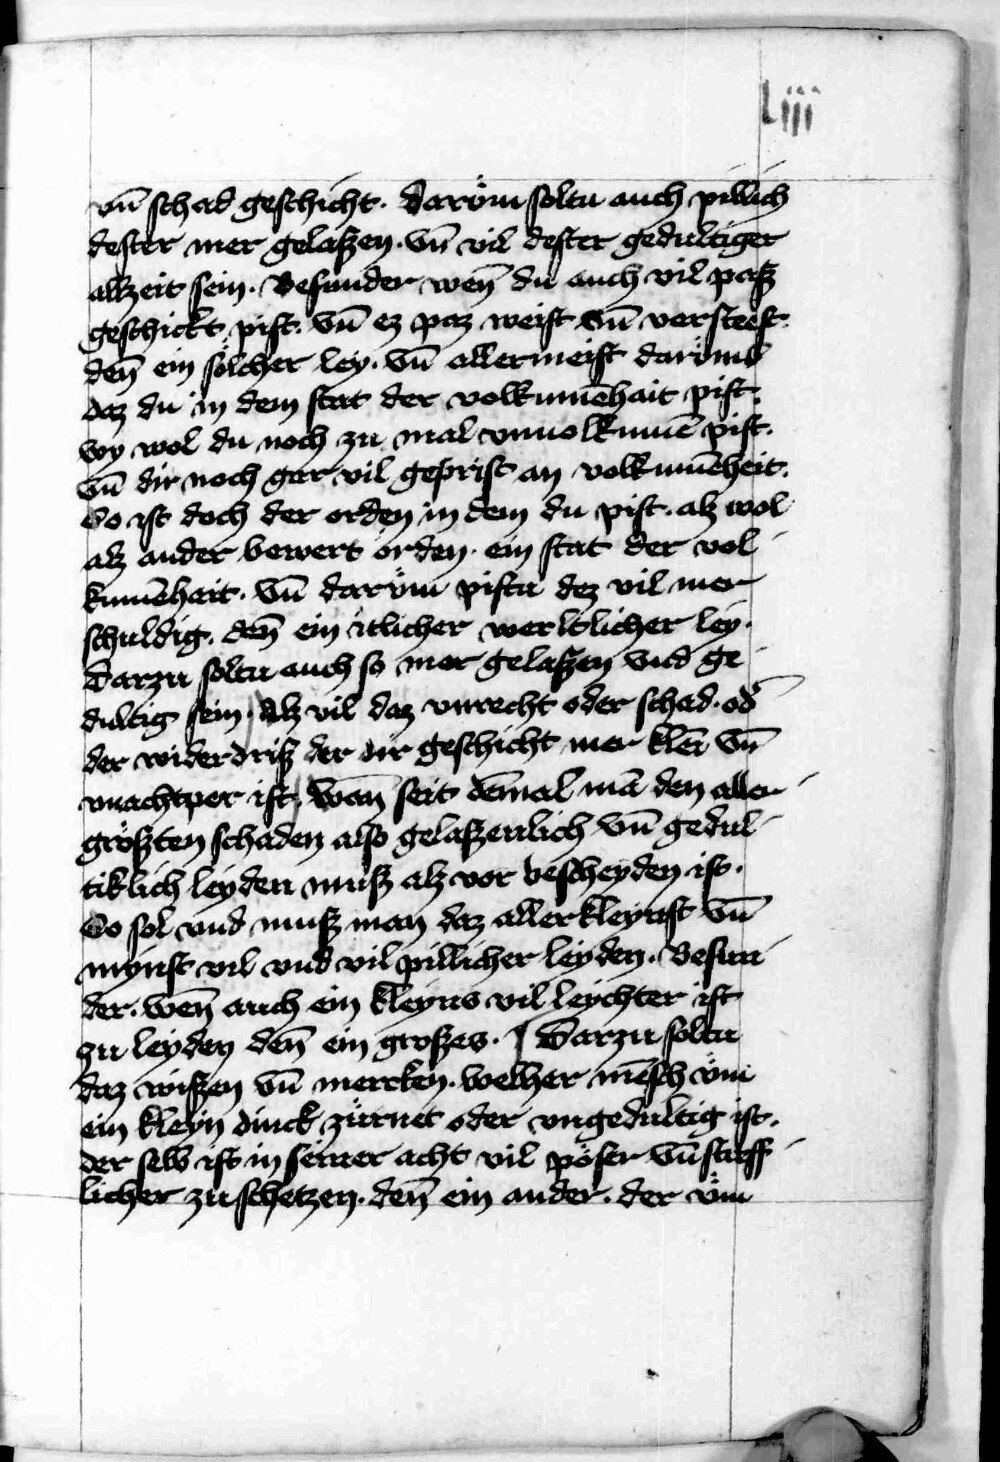 Liii
vn̄ schad geschicht. Darüm soltu auch pillich
dester mer gelaßen. vn̄ vil dester gedultiger
allzeit sein. Besunder wen̄ du auch vil paß
geschickt pist. vn̄ ez paz weist vn̄ versteest.
den̄ ein sölcher ley. vn̄ allermeist darümb
daz du in dem stat der volkumēhait pist.
wy wol du noch zu mal vnuolkumē pist.
vn̄ dir noch gar vil geprist an volkumēheit.
So ist doch der orden in dem du pist. alz wol
alz ander bewert orden. ein stat der vol
kumēhait. vn̄ darüm pistu dez vil mer
schuldig. den̄ ein itlicher werltlicher ley.
Darzu soltu auch so mer gelaßen vnd ge
dultig sein. Alz vil daz vnrecht oder schad. od̄
der widerdriß der dir geschicht mer klēr vn̄
vnachtper ist. wan̄ seit dēmal mā den aller
größten schaden also gelaßenlich vn̄ gedul
tiklich leyden muß alz vor bescheyden ist.
So sol vnd muß man daz allerkleynst vn̄
mynst vil vnd vil pillicher leyden. Besun
der. wen̄ auch ein kleyns vil leychter ist
zu leyden den̄ ein großes. Darzu soltu
daz wißen vn̄ mercken. welher mēsch üm
ein kleyn dinck zürnet oder vngedultig ist.
der selb ist in seiner acht vil pöser vn̄ streff
licher zu schetzen. den̄ ein ander. der üm